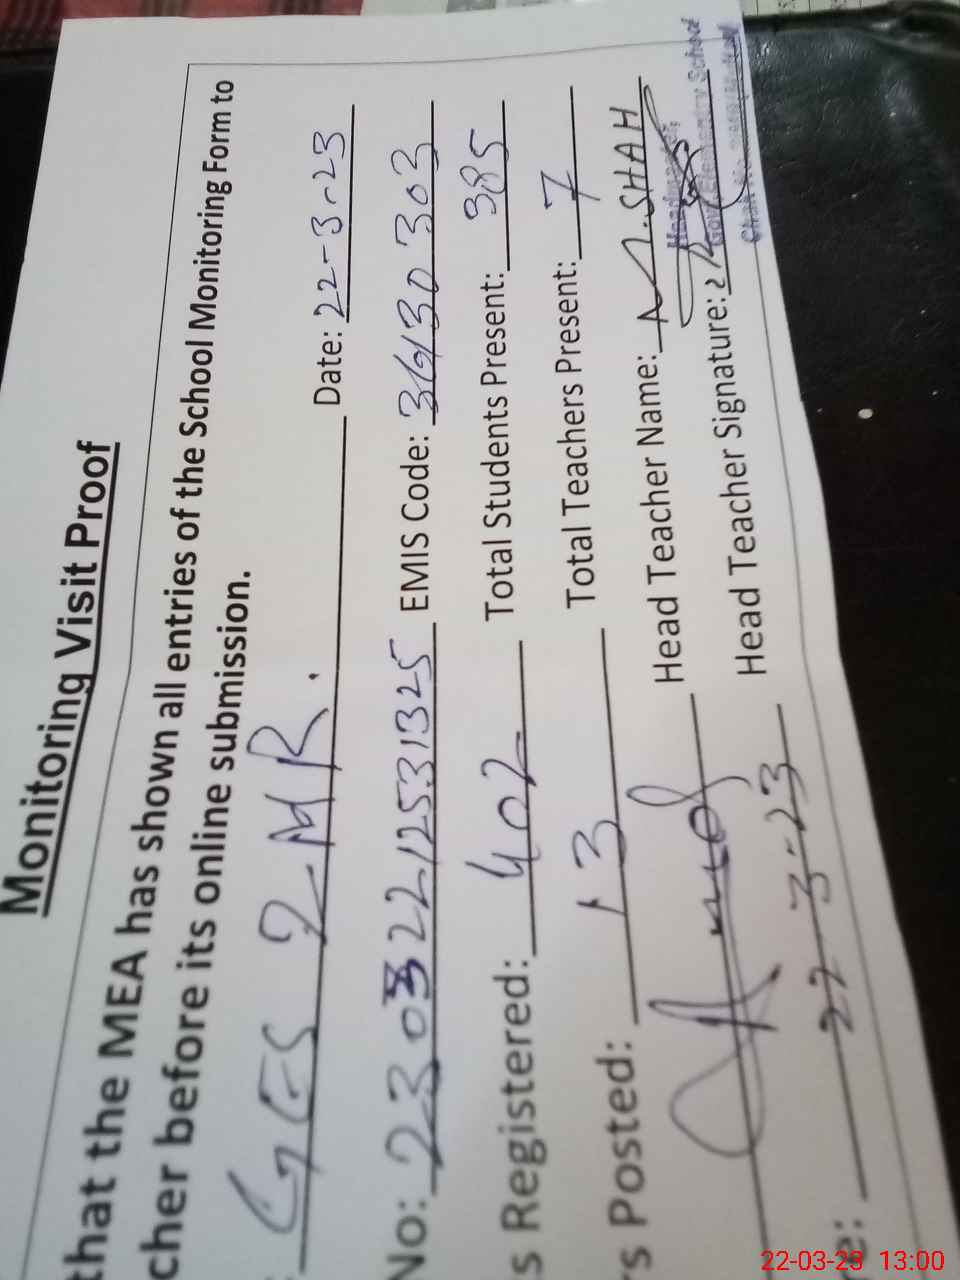 Monitoring Visit Proof
that the MEA has shown all entries of the School Monitoring Form to
cher before its online submission.
GES 2-MR. Date: 22-3-23
No: 23032212531325 EMIS Code: 36130303
s Registered: 402 Total Students Present: 385
rs Posted: 13 Total Teachers Present: 7
Head Teacher Name: N.SHAH
Head Teacher Signature:
e: 22-3-23
Headmaster,
Govt. Elementary School
22-03-23 13:00